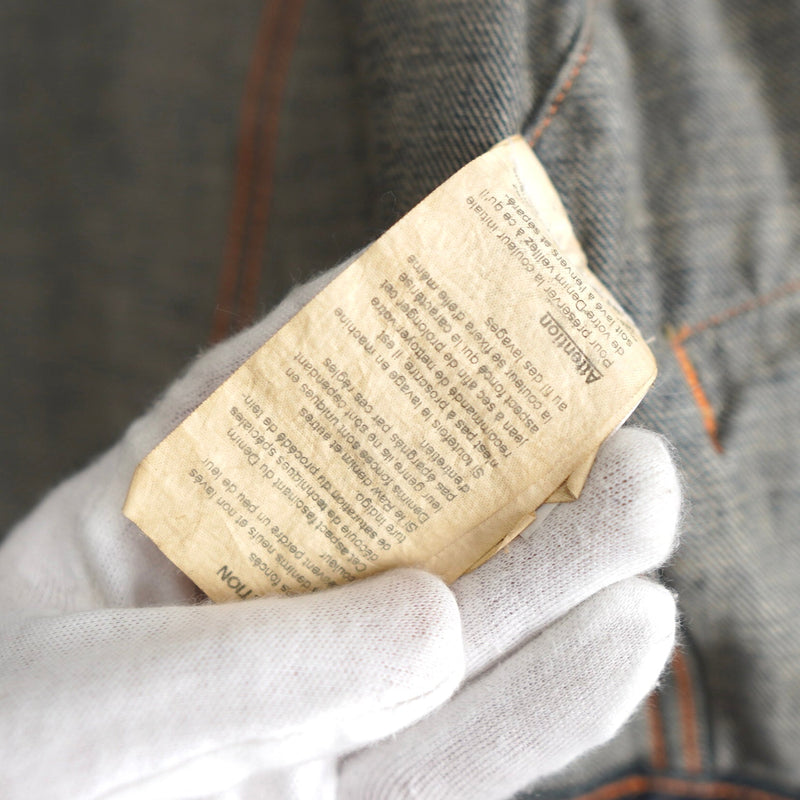 foncés
denims neufs et non lavés
perdre un peu de leur
couleur
Cet aspect fascinant du Denim
découle de techniques spéciales
de saturation du procédé de tein-
ture indigo.
Si le Raw denim et autres
Denims foncés sont uniques en
leur genre ils ne sont cependant
pas épargnés par ces règles
d'entretien.
Si toutefois le lavage en machine
n'est pas à proscrire il est
recommandé de nettoyer votre
jean à sec afin de prolonger cet
aspect foncé qui le caractérise
la couleur se fixera d'elle même
au fil des lavages
Attention
Pour préserver la couleur initiale
de votre Denim veillez à ce qu'il
soit lavé à l'envers et séparé.